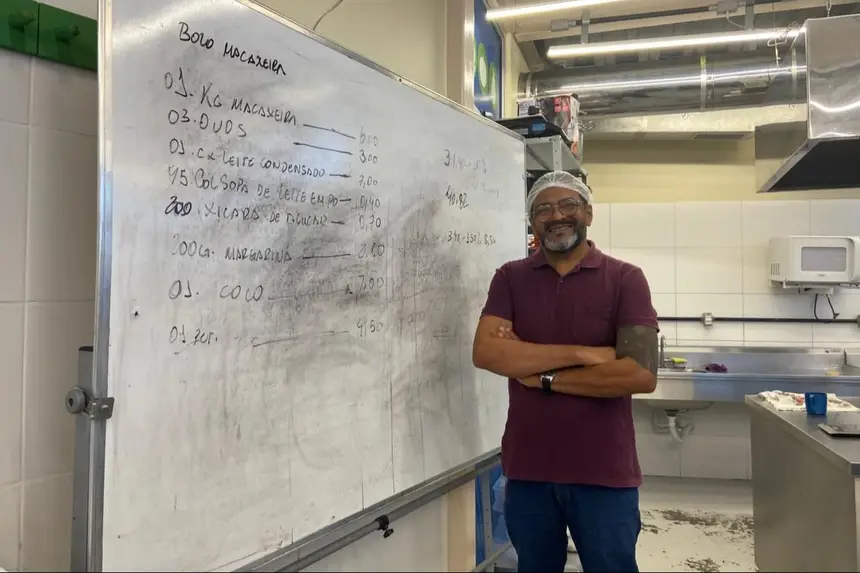 BOLO MACAXEIRA
01. KG MACAXEIRA 6,00
03. OVOS 3,00
01. CX LEITE CONDENSADO 7,00
COL SOPA DE LEITE EM PÓ 0,40
200 XICARA DE AÇUCAR 0,70
200G. MARGARINA
01. COCO 7,00
01. 4,50
40,82